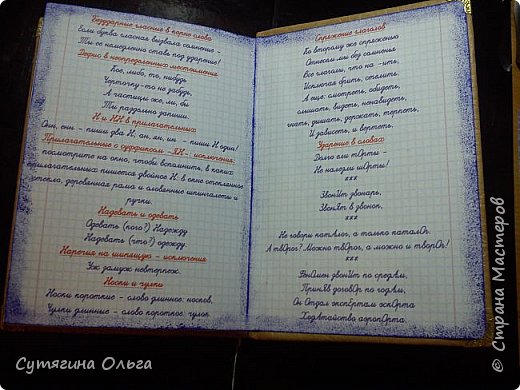 Безударные гласные в корне слова
Если буква гласная вызвала сомнение -
Ты ее немедленно ставь под ударение!
Дефис в неопределенных местоимениях
Кое, либо, то, нибудь
Черточку-то не забудь,
А частицы же, ли, бы
Ты раздельно запиши.
Н и НН в прилагательных
Онн, енн - пиши два Н, ан, ян, ин - пиши Н один!
Прилагательные с суффиксом -ЯН-, исключения:
посмотрите на окно, чтобы вспомнить, в каких
прилагательных пишется двойное Н: в окне стеклянное
стекло, деревянная рама и оловянные шпингалеты и
ручки.
Надевать и одевать
Одевать (кого?) Надежду
Надевать (что?) одежду.
Наречия на шипящую - исключения
Уж замуж невтерпеж.
Носки и чулки
Носки короткие - слово длинное: носков,
Чулки длинные - слово короткое: чулок.
Спряжение глаголов
Ко второму же спряженью
Отнесем мы без сомненья
Все глаголы, что на -ить,
Исключая брить, стелить.
А еще: смотреть, обидеть,
слышать, видеть, ненавидеть,
гнать, дышать, держать, терпеть,
И зависеть, и вертеть.
Ударение в словах
Долго ели тОрты -
Не налезли шОрты!
***
ЗвонИт звонарь,
ЗвонЯт в звонок,
***
Не говори катАлог, а только каталОг.
А твОрог? Можно твОрог, а можно и творОг!
***
ФенОмен звонИт по средАм,
ПринЯв договОр по годАм,
Он Отдал экспЕртам экспОрта
ХодАтайство аэропОрта.
Сутягина Ольга
© Страна Мастеров